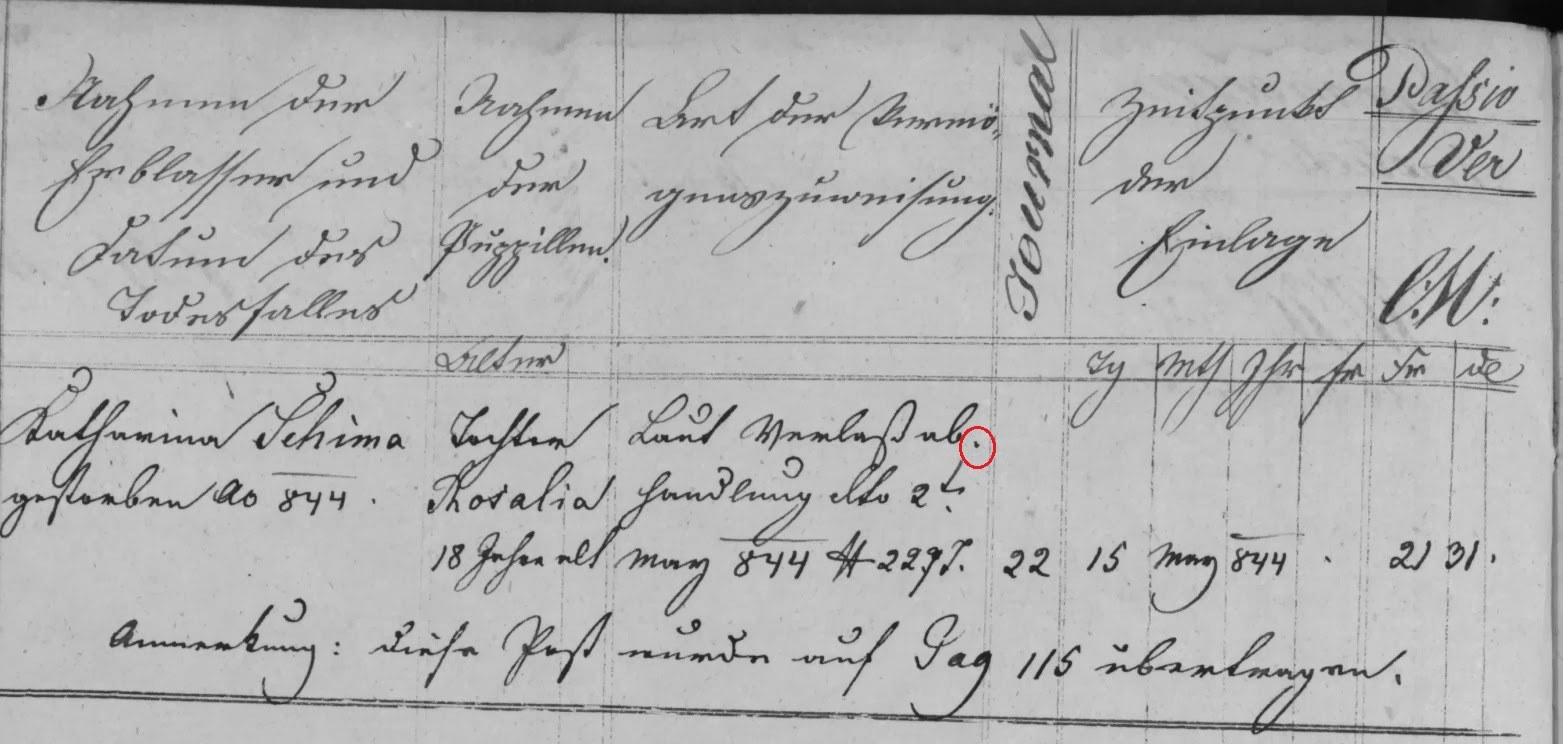 Nahmen der
Erblasser und
Datum des
Todesfalles
Nahmen
der
Puppillen.
Alter
Art der Vermö-
genszuweisung.
Journal
Zeitpunkt
der
Einlage
Tg Mth Jhr
Passiv
Ver
C: M:
fr Fr
Katharina Schima Tochter Laut Verlaß ab.
gestorben Ao 844. Rosalia handlung dto 2t.
18 Jahre alt May 844 22 15 May 844 . 21 31.
Anmerkung: diese Post wurde auf Pag 115 übertragen.